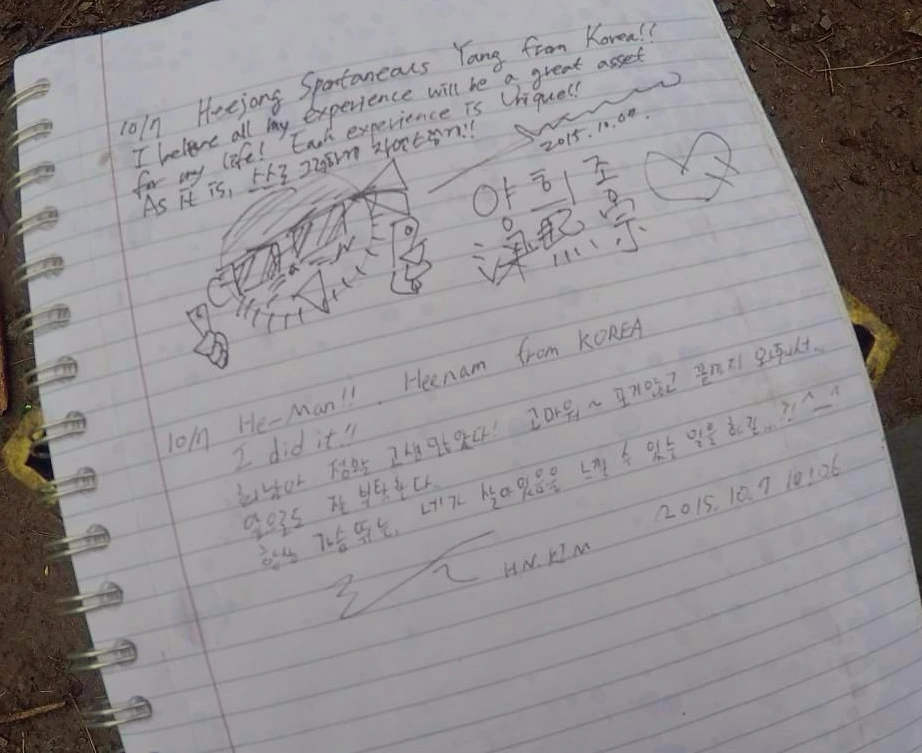 10/7 Heejong Spontaneous Yang from Korea!!
I believe all my experience will be a great asset
for my life! Each experience is Unique!!
As it is, 사로
2015.10.07.
양희종
梁熙宗
10/7 He-Man!!. Heenam from KOREA
I did it!!
희남아 정말 고생 많았다! 고마워~ 포기않고 끝까지 와줘서.
앞으로도 잘 부탁한다.
항상 가슴 뛰는, 네가 살아있음을 느낄 수 있는 일을 하길...?! ^_^
H.N.KIM 2015.10.7 10:06